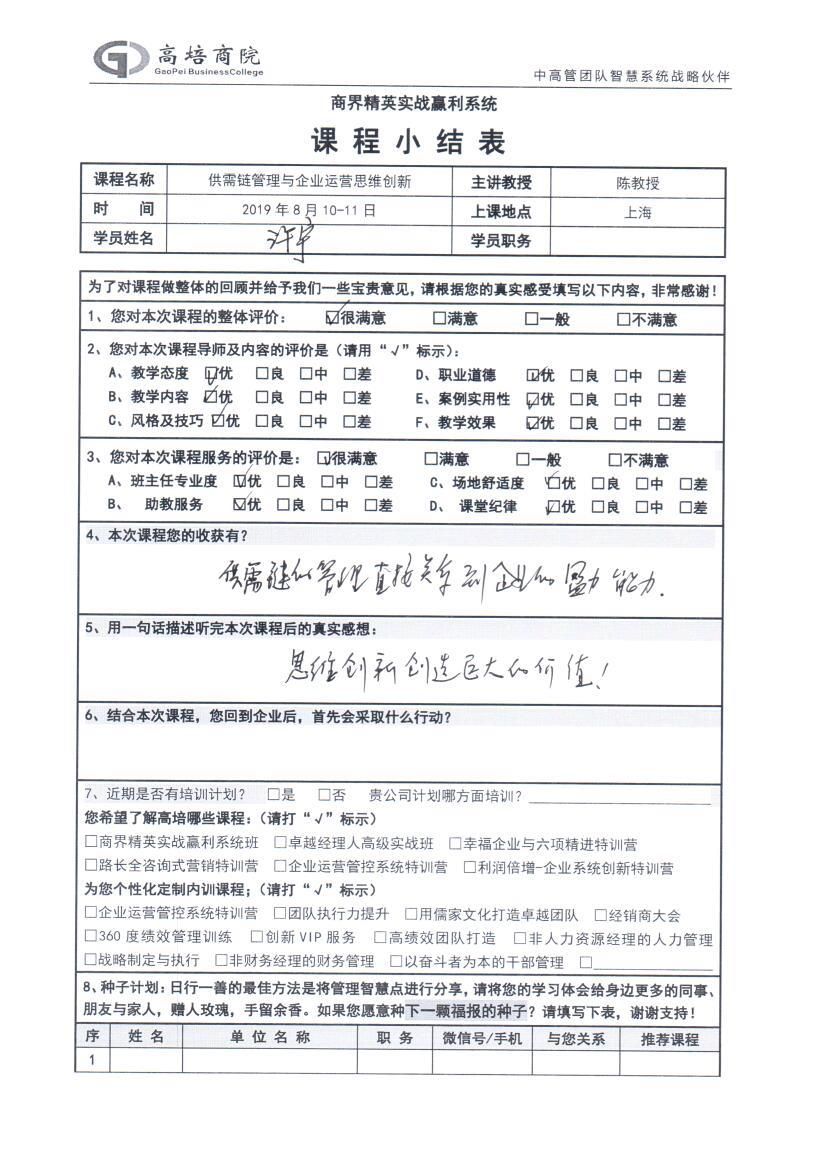 高培商院
GaoPei BusinessCollege
中高管团队智慧系统战略伙伴
商界精英实战赢利系统
课程小结表
课程名称 供需链管理与企业运营思维创新 主讲教授 陈教授
时 间 2019年8月10-11日 上课地点 上海
学员姓名 许宇 学员职务
为了对课程做整体的回顾并给予我们一些宝贵意见,请根据您的真实感受填写以下内容,非常感谢!
1、您对本次课程的整体评价: ☑很满意 □满意 □一般 □不满意
2、您对本次课程导师及内容的评价是(请用“√”标示):
A、教学态度 ☑优 □良 □中 □差 D、职业道德 ☑优 □良 □中 □差
B、教学内容 ☑优 □良 □中 □差 E、案例实用性 ☑优 □良 □中 □差
C、风格及技巧 ☑优 □良 □中 □差 F、教学效果 ☑优 □良 □中 □差
3、您对本次课程服务的评价是: ☑很满意 □满意 □一般 □不满意
A、班主任专业度 ☑优 □良 □中 □差 C、场地舒适度 ☑优 □良 □中 □差
B、 助教服务 ☑优 □良 □中 □差 D、 课堂纪律 ☑优 □良 □中 □差
4、本次课程您的收获有?
供需链的管理直接关系到企业的盈力能力.
5、用一句话描述听完本次课程后的真实感想:
思维创新创造巨大的价值!
6、结合本次课程,您回到企业后,首先会采取什么行动?
7、近期是否有培训计划? □是 □否 贵公司计划哪方面培训?
您希望了解高培哪些课程:(请打“√”标示)
□商界精英实战赢利系统班 □卓越经理人高级实战班 □幸福企业与六项精进特训营
□路长全咨询式营销特训营 □企业运营管控系统特训营 □利润倍增-企业系统创新特训营
为您个性化定制内训课程;(请打“√”标示)
□企业运营管控系统特训营 □团队执行力提升 □用儒家文化打造卓越团队 □经销商大会
□360度绩效管理训练 □创新VIP服务 □高绩效团队打造 □非人力资源经理的人力管理
□战略制定与执行 □非财务经理的财务管理 □以奋斗者为本的干部管理 □
8、种子计划:日行一善的最佳方法是将管理智慧点进行分享,请将您的学习体会给身边更多的同事、
朋友与家人,赠人玫瑰,手留余香。如果您愿意种下一颗福报的种子?请填写下表,谢谢支持!
序 姓名 单位名称 职务 微信号/手机 与您关系 推荐课程
1